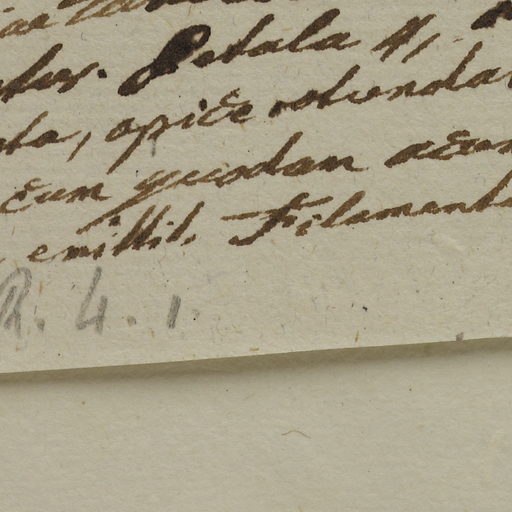 ter. Petala 4,
ta, apice rotunda
cum quodam acum
emittit. Filamenta
R. 4. 1.